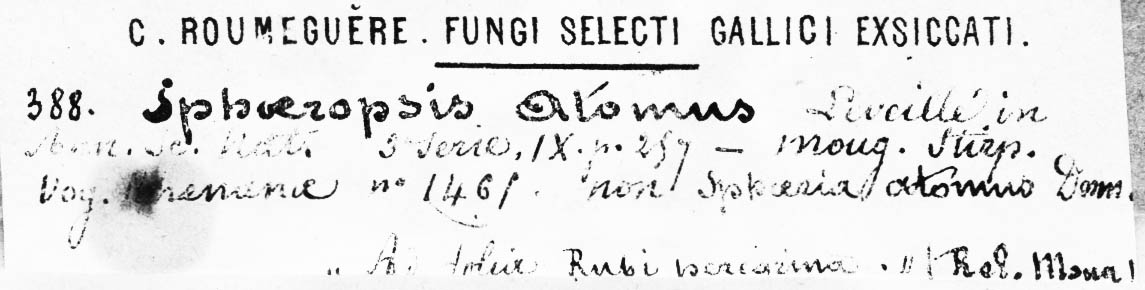 C. ROUMEGUÈRE. FUNGI SELECTI GALLICI EXSICCATI.
388. Sphæropsis atomus Léveillé, in
Ann. Sc. Nat. 3e Serie, IX. p. 257 — Moug. Stirp.
Vog. Rhenanæ no 1461. non Sphæria atomus Desm.
Ad folia Rubi